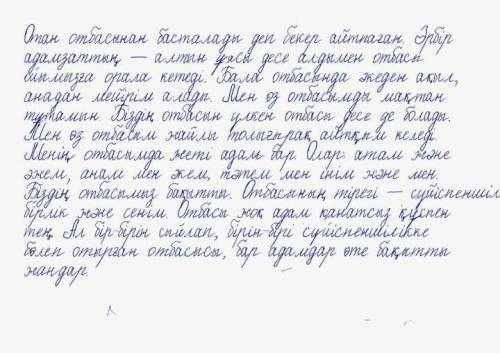 Отан отбасынан басталады деп бекер айтпаған. Әрбір
адамзаттың — алтын ұясы десе алдымен отбасы
ойымызға орала кетеді. Бала отбасында әкеден ақыл,
анадан мейірім алады. Мен өз отбасымды мақтан
тұтамын. Біздің отбасын үлкен отбасы десе де болады.
Мен өз отбасым жайлы толығырақ айтқым келеді.
Менің отбасымда жеті адам бар. Олар: атам және
әжем, анам мен әкем, тәтем мен інім және мен.
Біздің отбасымыз бақытты. Отбасының тірегі — сүйіспеншіл
бірлік және сенім. Отбасы жоқ адам қанатсыз құспен
тең. Ал бір-бірін сыйлап, бірін-бірі сүйіспеншілікке
бөлеп отырған отбасысы, бар адамдар өте бақытты
жандар.